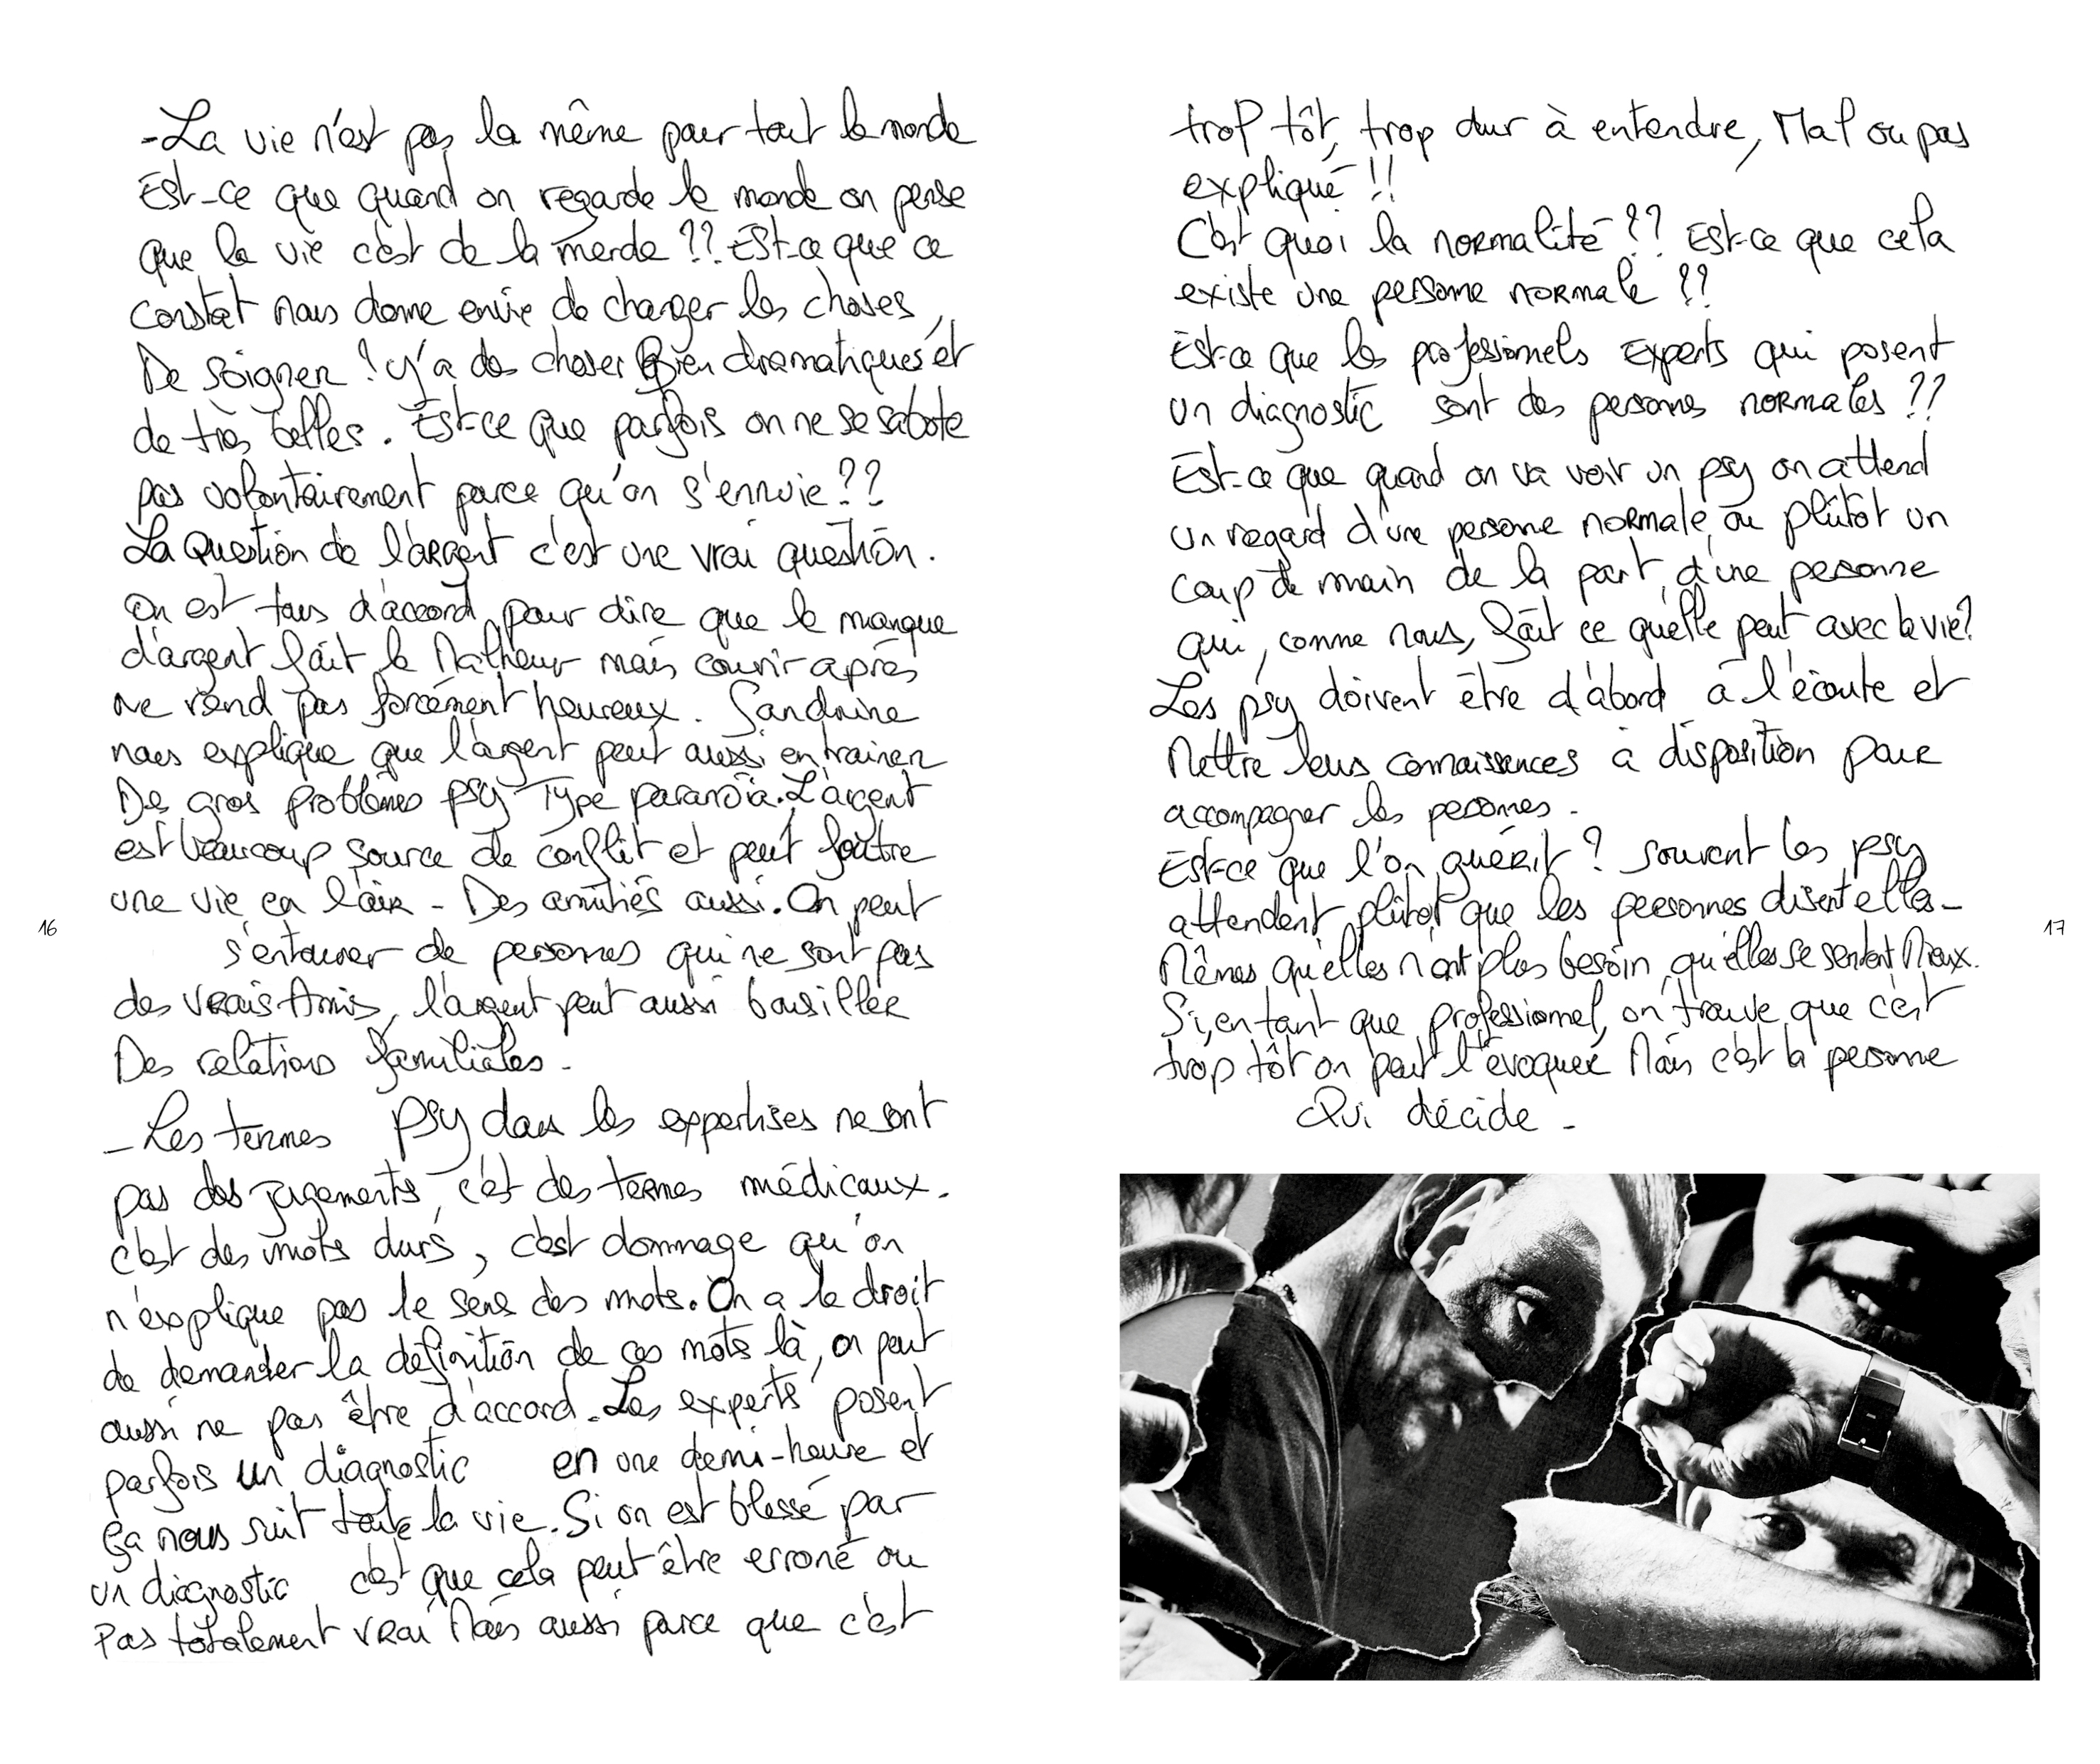 -La vie n'est pas la même pour tout le monde
Est-ce que quand on regarde le monde on pense
que la vie c'est de la merde ?? Est-ce que ce
constat nous donne envie de changer les choses,
De Soigner ! y'a des choses Bien dramatiques et
de très belles. Est-ce que parfois on ne se sabote
pas volontairement parce qu'on s'ennuie ??
La Question de l'argent c'est une vrai question.
On est tous d'accord pour dire que le manque
d'argent fait le Malheur mais courir après
ne rend pas forcément heureux. Sandrine
nous explique que l'argent peut aussi entrainer
De gros problèmes psy Type paranoïa. L'argent
est beaucoup source de conflit et peut foutre
une vie en l'air - Des amitiés aussi. On peut
s'entourer de personnes qui ne sont pas
des vrais Amis, l'argent peut aussi bousiller
Des relations familiales -
- Les termes psy dans les expertises ne sont
pas des jugements, c'est des termes médicaux.
c'est des mots durs, c'est dommage qu'on
n'explique pas le sens des mots. On a le droit
de demander la définition de ces mots là, on peut
aussi ne pas être d'accord. Les experts posent
parfois un diagnostic en une demi-heure et
ça nous suit toute la vie. Si on est blessé par
un diagnostic c'est que cela peut être erroné ou
Pas totalement vrai Mais aussi parce que c'est
16
trop tôt, trop dur à entendre, Mal ou pas
expliqué !!
C'est quoi la normalité ?? Est-ce que cela
existe une personne normale ??
Est-ce que les professionnels Experts qui posent
un diagnostic sont des personnes normales ??
Est-ce que quand on va voir un psy on attend
un regard d'une personne normale, ou plutôt un
coup de main de la part d'une personne
qui, comme nous, fait ce qu'elle peut avec la vie?
Les psy doivent être d'abord à l'écoute et
Mettre leurs connaissances à disposition pour
accompagner les personnes -
Est-ce que l'on guérit ? souvent les psy
attendent plutôt que les personnes disent elles-
Mêmes qu'elles n'ont plus besoin, qu'elles se sentent Mieux.
Si, en tant que professionnel, on trouve que c'est
trop tôt on peut l'évoquer Mais c'est la personne
Qui décide -
17